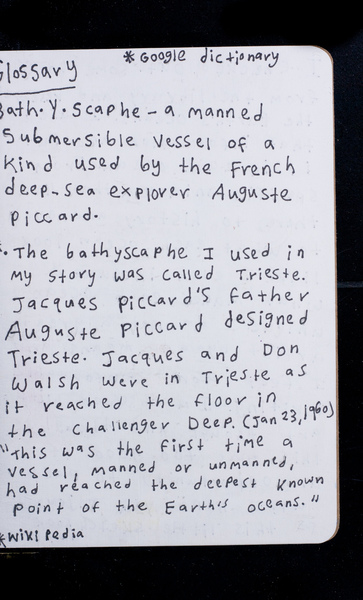 * Google dictionary
Glossary
Bath·Y·Scaphe - a manned
submersible vessel of a
kind used by the French
deep-sea explorer Auguste
Piccard.
*. The bathyscaphe I used in
my story was called Trieste.
Jacques Piccard's father
Auguste Piccard designed
Trieste. Jacques and Don
Walsh were in Trieste as
it reached the floor in
the Challenger Deep. (Jan 23, 1960)
"This was the first time a
vessel, manned or unmanned,
had reached the deepest known
point of the Earth's oceans."
*Wikipedia